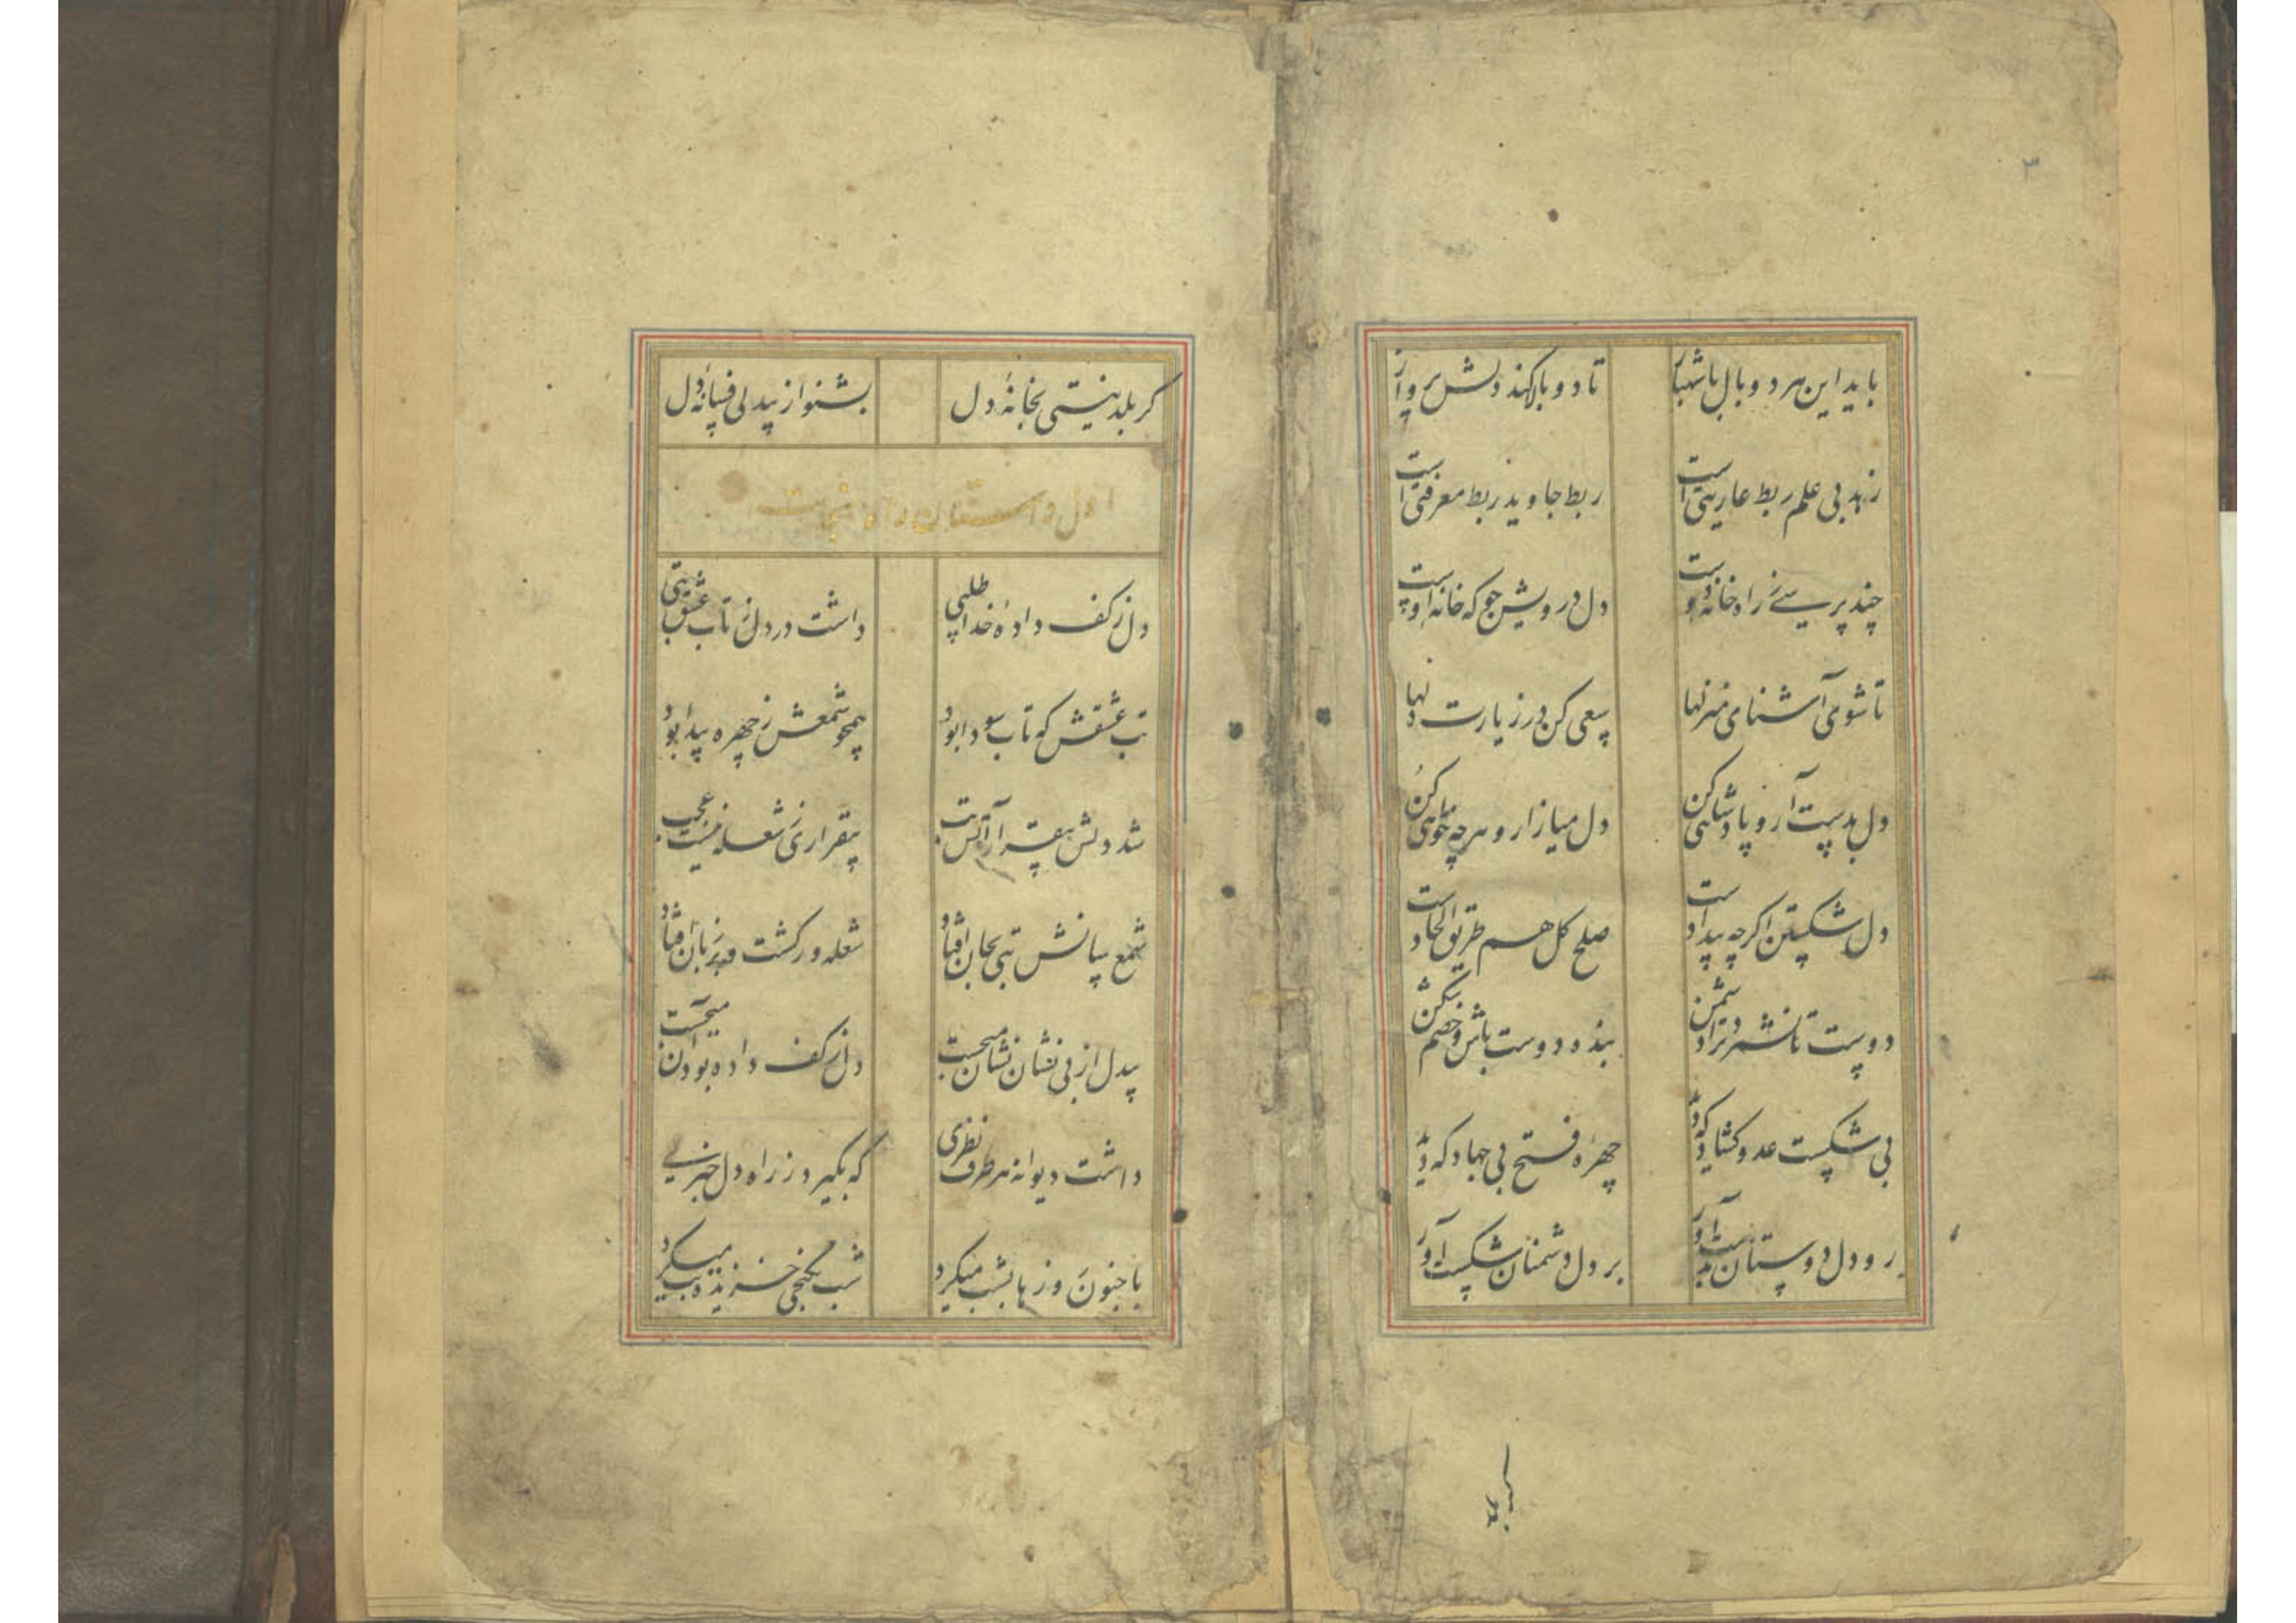 ۳
باید این هر دو بال با شهباز تا دو بالا کند دلش پرواز
زهد بی علم ربط عاریتی است ربط جاوید ربط معرفتی است
چند پرسی ز راه خانهٔ دوست دل درویش جو که خانهٔ اوست
تا شوی آشنای منزلها سعی کن در زیارت دلها
دل بدست آر و پادشاهی کن دل میازار و هرچه خواهی کن
دل شکستن اگرچه بیداد است صلح کل هم طریق الحاد است
دوست تا نشمرد ترا دشمن بنده دوست باش و خصم شکن
بی شکست عدو گشاد که دید چهرهٔ فتح بی جهاد که دید
رو دل دوستان بدست آور بر دل دشمنان شکست آور
گر بلد
گر بلد نیستی بخانهٔ دل بشنو از بیدلی فسانهٔ دل
اول داستان راه نجات
دل ز کف دادهٔ خدا طلبی داشت در دل ز تاب عشق تبی
تب عشقش که تاب سودا بود همچو شمعش ز چهره پیدا بود
شد دلش بیقرار از آتش تب بیقراری ز شعله نیست عجب
شمع سانش تبی بجان افتاد شعله ور گشت و بر زبان افتاد
بیدل از بی نشان نشان میجست دل از کف داده بود از آن میجست
داشت دیوانه هر طرف نظری که بگیرد ز راه دل خبری
با جنون روزها بشب میکرد شب بکنجی خزیده تب میکرد